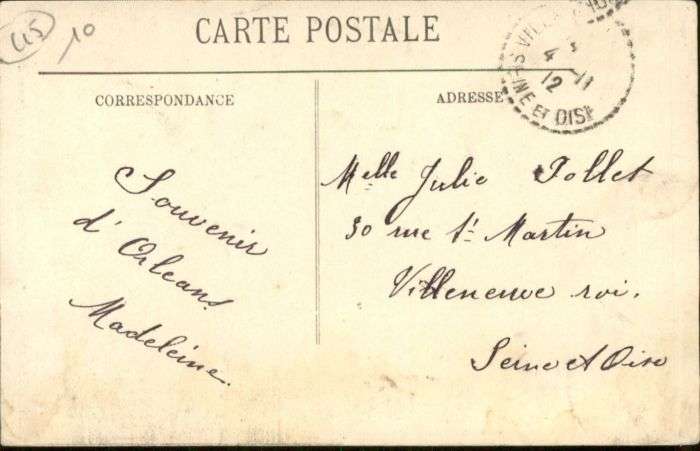 (45)
10
CARTE POSTALE
CORRESPONDANCE
ADRESSE
4 - 11
12
SEINE ET OISE
Souvenir
d'Orleans.
Madeleine.
Melle Julie Pollet
30 rue St Martin
Villeneuve roi.
Seine et Oise